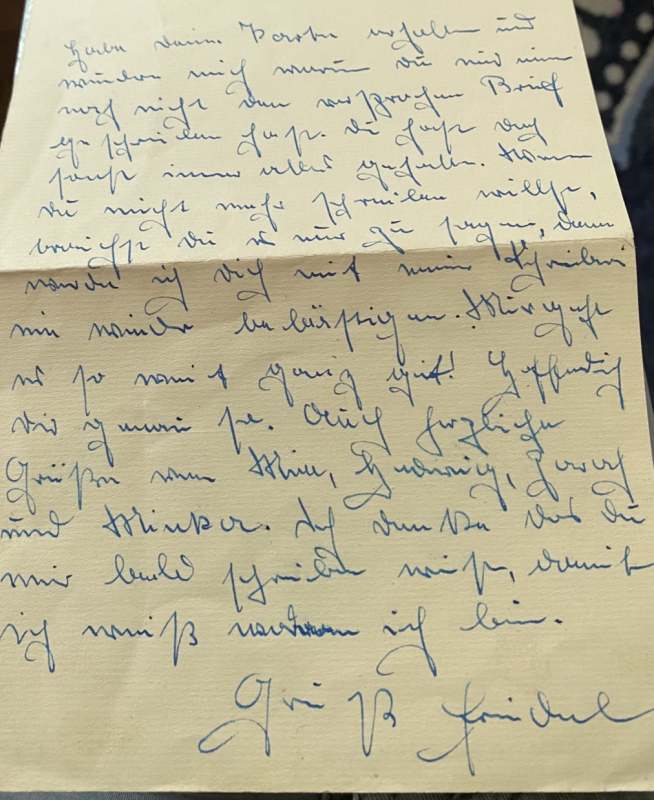 Habe deine Karte erhalten und
wundre mich warum du mir nun
noch nicht den versprochen Brief
geschrieben hast. Du hast doch
sonst immer alles gehalten. Wenn
du nicht mehr schreiben willst,
brauchst du es nur zu sagen, dann
werde ich dich mit meiner Schreiberei
nie wieder belästigen. Mir geht
es so weit ganz gut! Hoffendlich
dir genau so. Auch herzliche
Grüße von
und Minka. Ich denke das du
mir bald schreiben wirst, damit
ich weiß woran ich bin.
Gruß Friedel